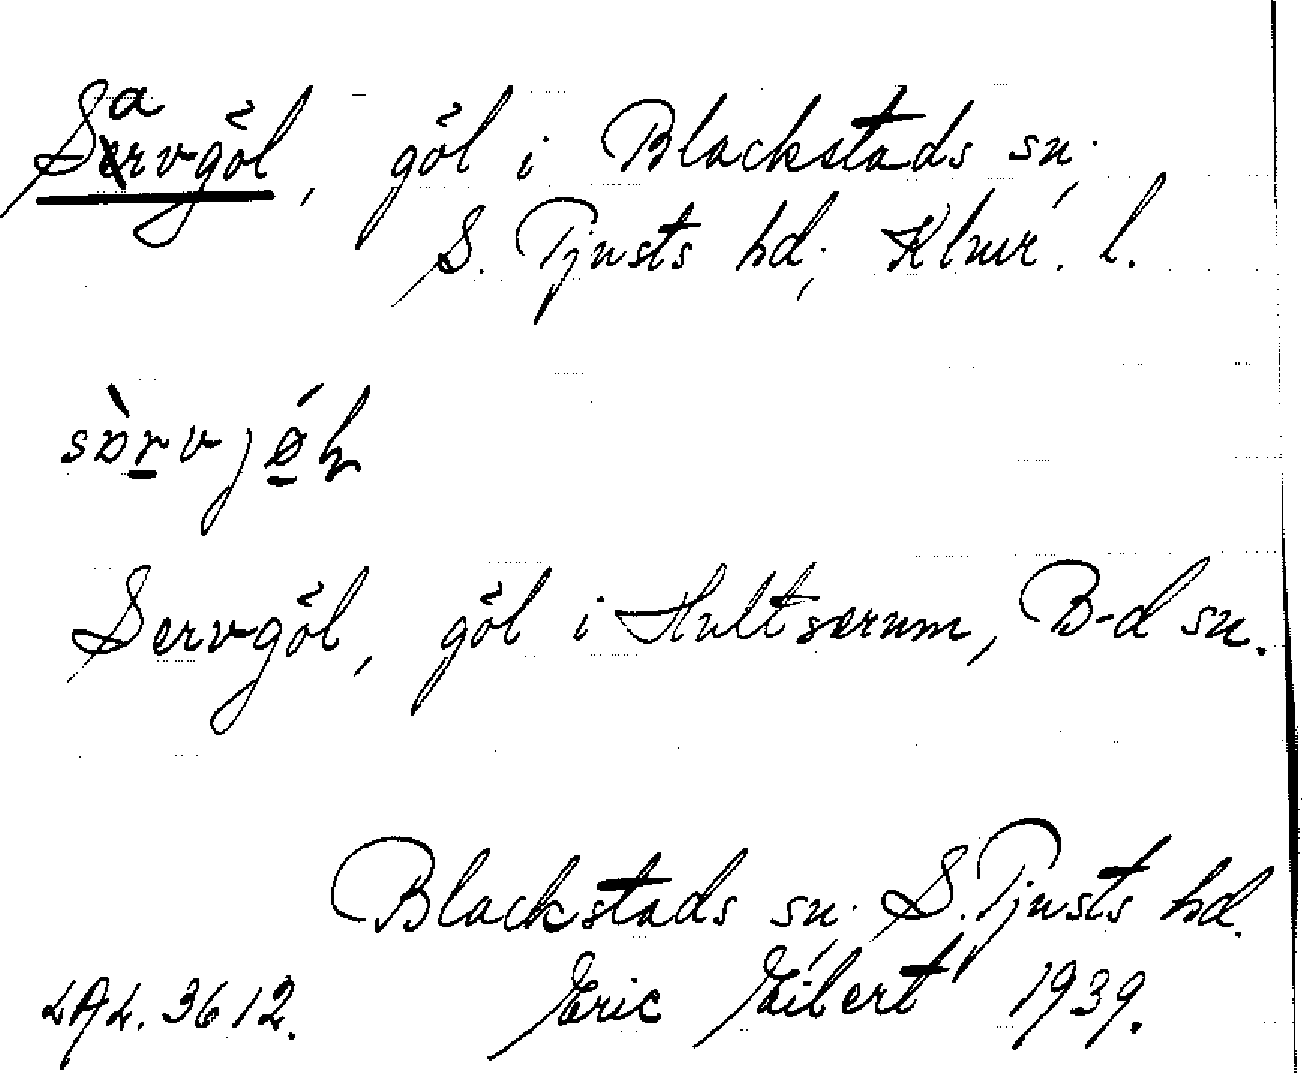 Sarvgöl, göl i Blackstads sn.
S. Tjusts hd, Klmr. l.
Servgöl, göl i Hultserum, B-d sn.
Blackstads sn. S. Tjusts hd.
LAL. 3612. Eric Eibert 1939.